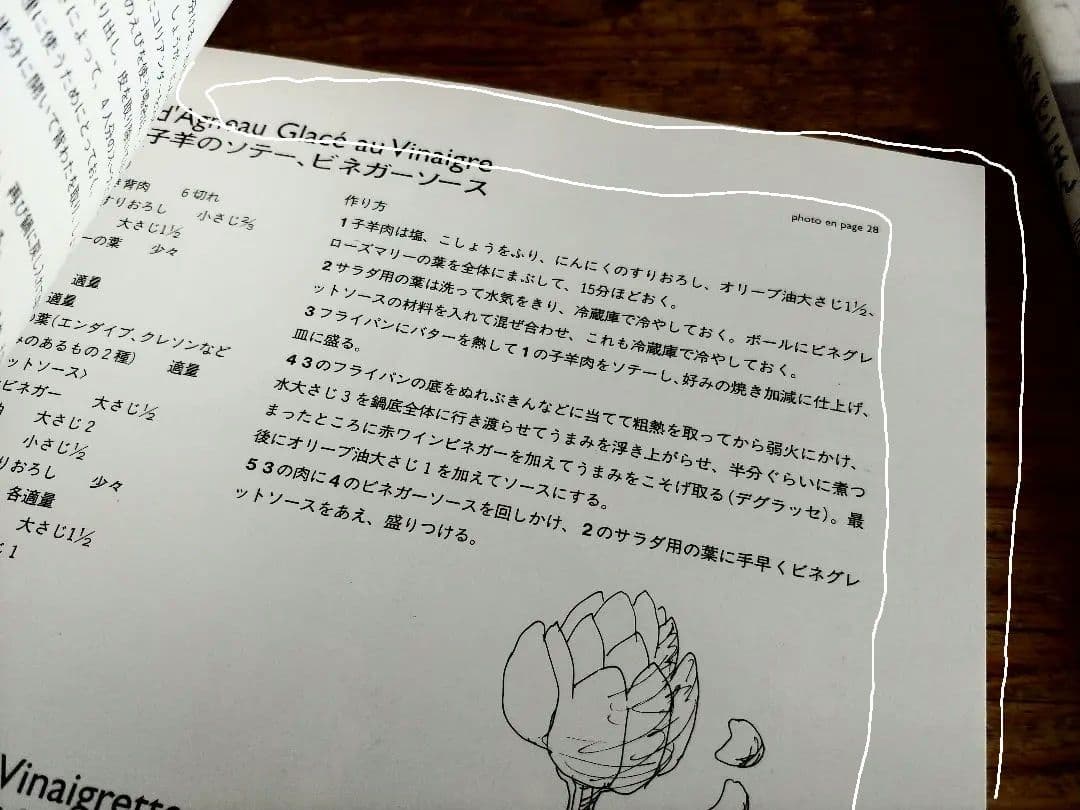 d'Agneau Glacé au Vinaigre
子羊のソテー、ビネガーソース
photo en page 28
背肉 6切れ
すりおろし 小さじ2/3
大さじ1 1/2
ーの葉 少々
適量
適量
葉(エンダイブ、クレソンなど
みのあるもの2種) 適量
ットソース〉
ビネガー 大さじ1/2
大さじ2
小さじ1/2
りおろし 少々
各適量
大さじ1 1/2
じ1
作り方
1子羊肉は塩、こしょうをふり、にんにくのすりおろし、オリーブ油大さじ1 1/2、
ローズマリーの葉を全体にまぶして、15分ほどおく。
2サラダ用の葉は洗って水気をきり、冷蔵庫で冷やしておく。ボールにビネグレ
ットソースの材料を入れて混ぜ合わせ、これも冷蔵庫で冷やしておく。
3フライパンにバターを熱して1の子羊肉をソテーし、好みの焼き加減に仕上げ、
皿に盛る。
4 3のフライパンの底をぬれぶきんなどに当てて粗熱を取ってから弱火にかけ、
水大さじ3を鍋底全体に行き渡らせてうまみを浮き上がらせ、半分ぐらいに煮つ
まったところに赤ワインビネガーを加えてうまみをこそげ取る(デグラッセ)。最
後にオリーブ油大さじ1を加えてソースにする。
5 3の肉に4のビネガーソースを回しかけ、2のサラダ用の葉に手早くビネグレ
ットソースをあえ、盛りつける。
Vinaigrette